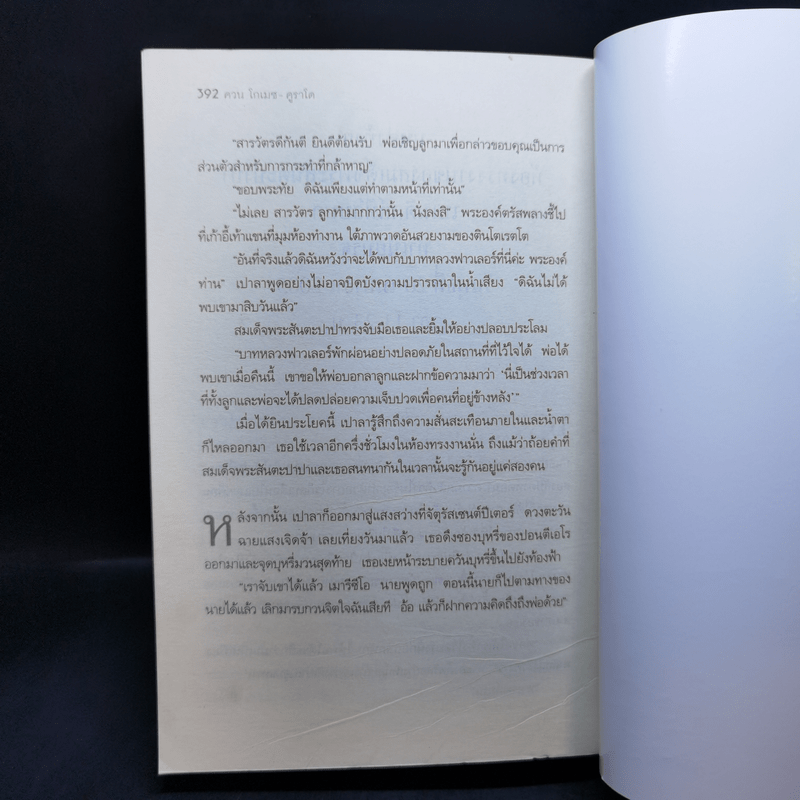 392 ควน โกเมซ-คูราโด
“สารวัตรดีกันตี ยินดีต้อนรับ พ่อเชิญลูกมาเพื่อกล่าวขอบคุณเป็นการ
ส่วนตัวสำหรับการกระทำที่กล้าหาญ”
“ขอบพระทัย ดิฉันเพียงแต่ทำตามหน้าที่เท่านั้น”
“ไม่เลย สารวัตร ลูกทำมากกว่านั้น นั่งลงสิ” พระองค์ตรัสพลางชี้ไป
ที่เก้าอี้เท้าแขนที่มุมห้องทำงาน ใต้ภาพวาดอันสวยงามของตินโตเรตโต
“อันที่จริงแล้วดิฉันหวังว่าจะได้พบกับบาทหลวงฟาวเลอร์ที่นี่ค่ะ พระองค์
ท่าน” เปาลาพูดอย่างไม่อาจปิดบังความปรารถนาในน้ำเสียง “ดิฉันไม่ได้
พบเขามาสิบวันแล้ว”
สมเด็จพระสันตะปาปาทรงจับมือเธอและยิ้มให้อย่างปลอบประโลม
“บาทหลวงฟาวเลอร์พักผ่อนอย่างปลอดภัยในสถานที่ที่ไว้ใจได้ พ่อได้
พบเขาเมื่อคืนนี้ เขาขอให้พ่อบอกลาลูกและฝากข้อความมาว่า ‘นี่เป็นช่วงเวลา
ที่ทั้งลูกและพ่อจะได้ปลดปล่อยความเจ็บปวดเพื่อคนที่อยู่ข้างหลัง’”
เมื่อได้ยินประโยคนี้ เปาลารู้สึกถึงความสั่นสะเทือนภายในและน้ำตา
ก็ไหลออกมา เธอใช้เวลาอีกครึ่งชั่วโมงในห้องทรงงานนั่น ถึงแม้ว่าถ้อยคำที่
สมเด็จพระสันตะปาปาและเธอสนทนากันในเวลานั้นจะรู้กันอยู่แค่สองคน
หลังจากนั้น เปาลาก็ออกมาสู่แสงสว่างที่จัตุรัสเซนต์ปีเตอร์ ดวงตะวัน
ฉายแสงเจิดจ้า เลยเที่ยงวันมาแล้ว เธอดึงซองบุหรี่ของปอนตีเอโร
ออกมาและจุดบุหรี่มวนสุดท้าย เธอเงยหน้าระบายควันบุหรี่ขึ้นไปยังท้องฟ้า
“เราจับเขาได้แล้ว เมารีซีโอ นายพูดถูก ตอนนี้นายก็ไปตามทางของ
นายได้แล้ว เลิกมารบกวนจิตใจฉันเสียที อ้อ แล้วก็ฝากความคิดถึงถึงพ่อด้วย”